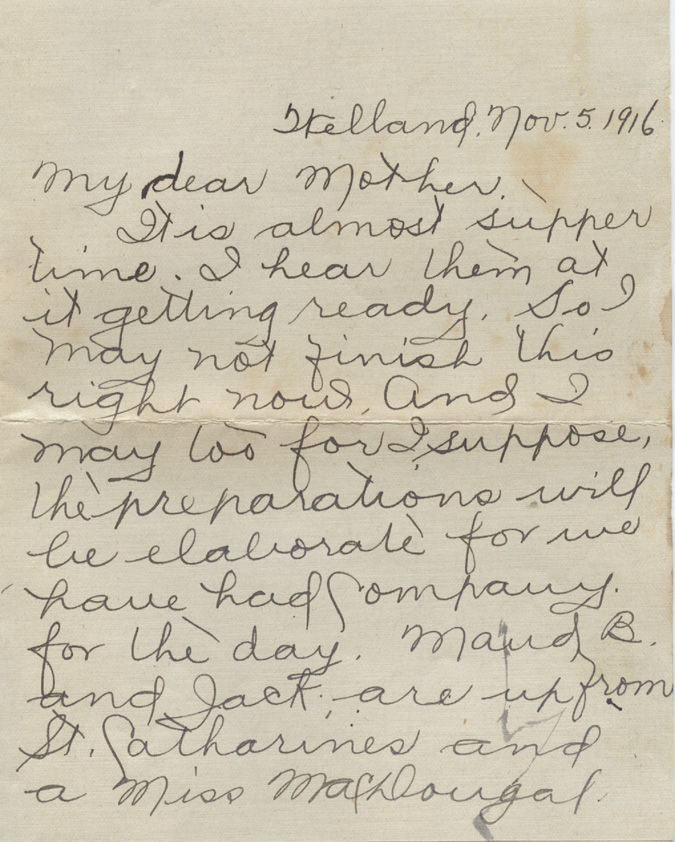 Welland, Nov. 5. 1916
My dear Mother,
It is almost supper
time. I hear them at
it getting ready. So I
may not finish this
right now. And I
may too for I suppose,
the preparations will
be elaborate for we
have had Company.
for the day. Maud B.
and Jack, are up from
St. Catharines and
a Miss MacDougal.